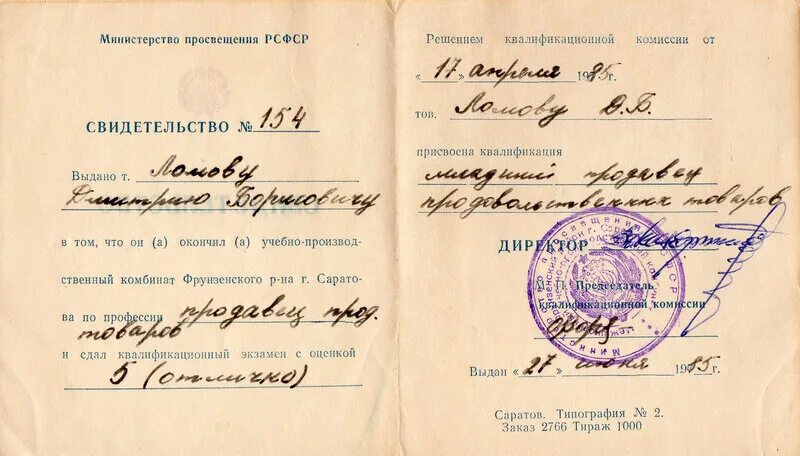 Министерство просвещения РСФСР
СВИДЕТЕЛЬСТВО № 154
Выдано т. Ломову
Дмитрию Борисовичу
в том, что он (а) окончил (а) учебно-производ-
ственный комбинат Фрунзенского р-на г. Сарато-
ва по профессии продавец прод.
товаров
и сдал квалификационный экзамен с оценкой
5 (отлично)
Решением квалификационной комиссии от
« 17 » апреля 1985г.
тов. Ломову Д.Б.
присвоена квалификация
младший продавец
продовольственных товаров
ДИРЕКТОР
М. П. Председатель
квалификационной комиссии
Выдан « 27 » июня 1985г.
Саратов. Типография № 2.
Заказ 2766 Тираж 1000